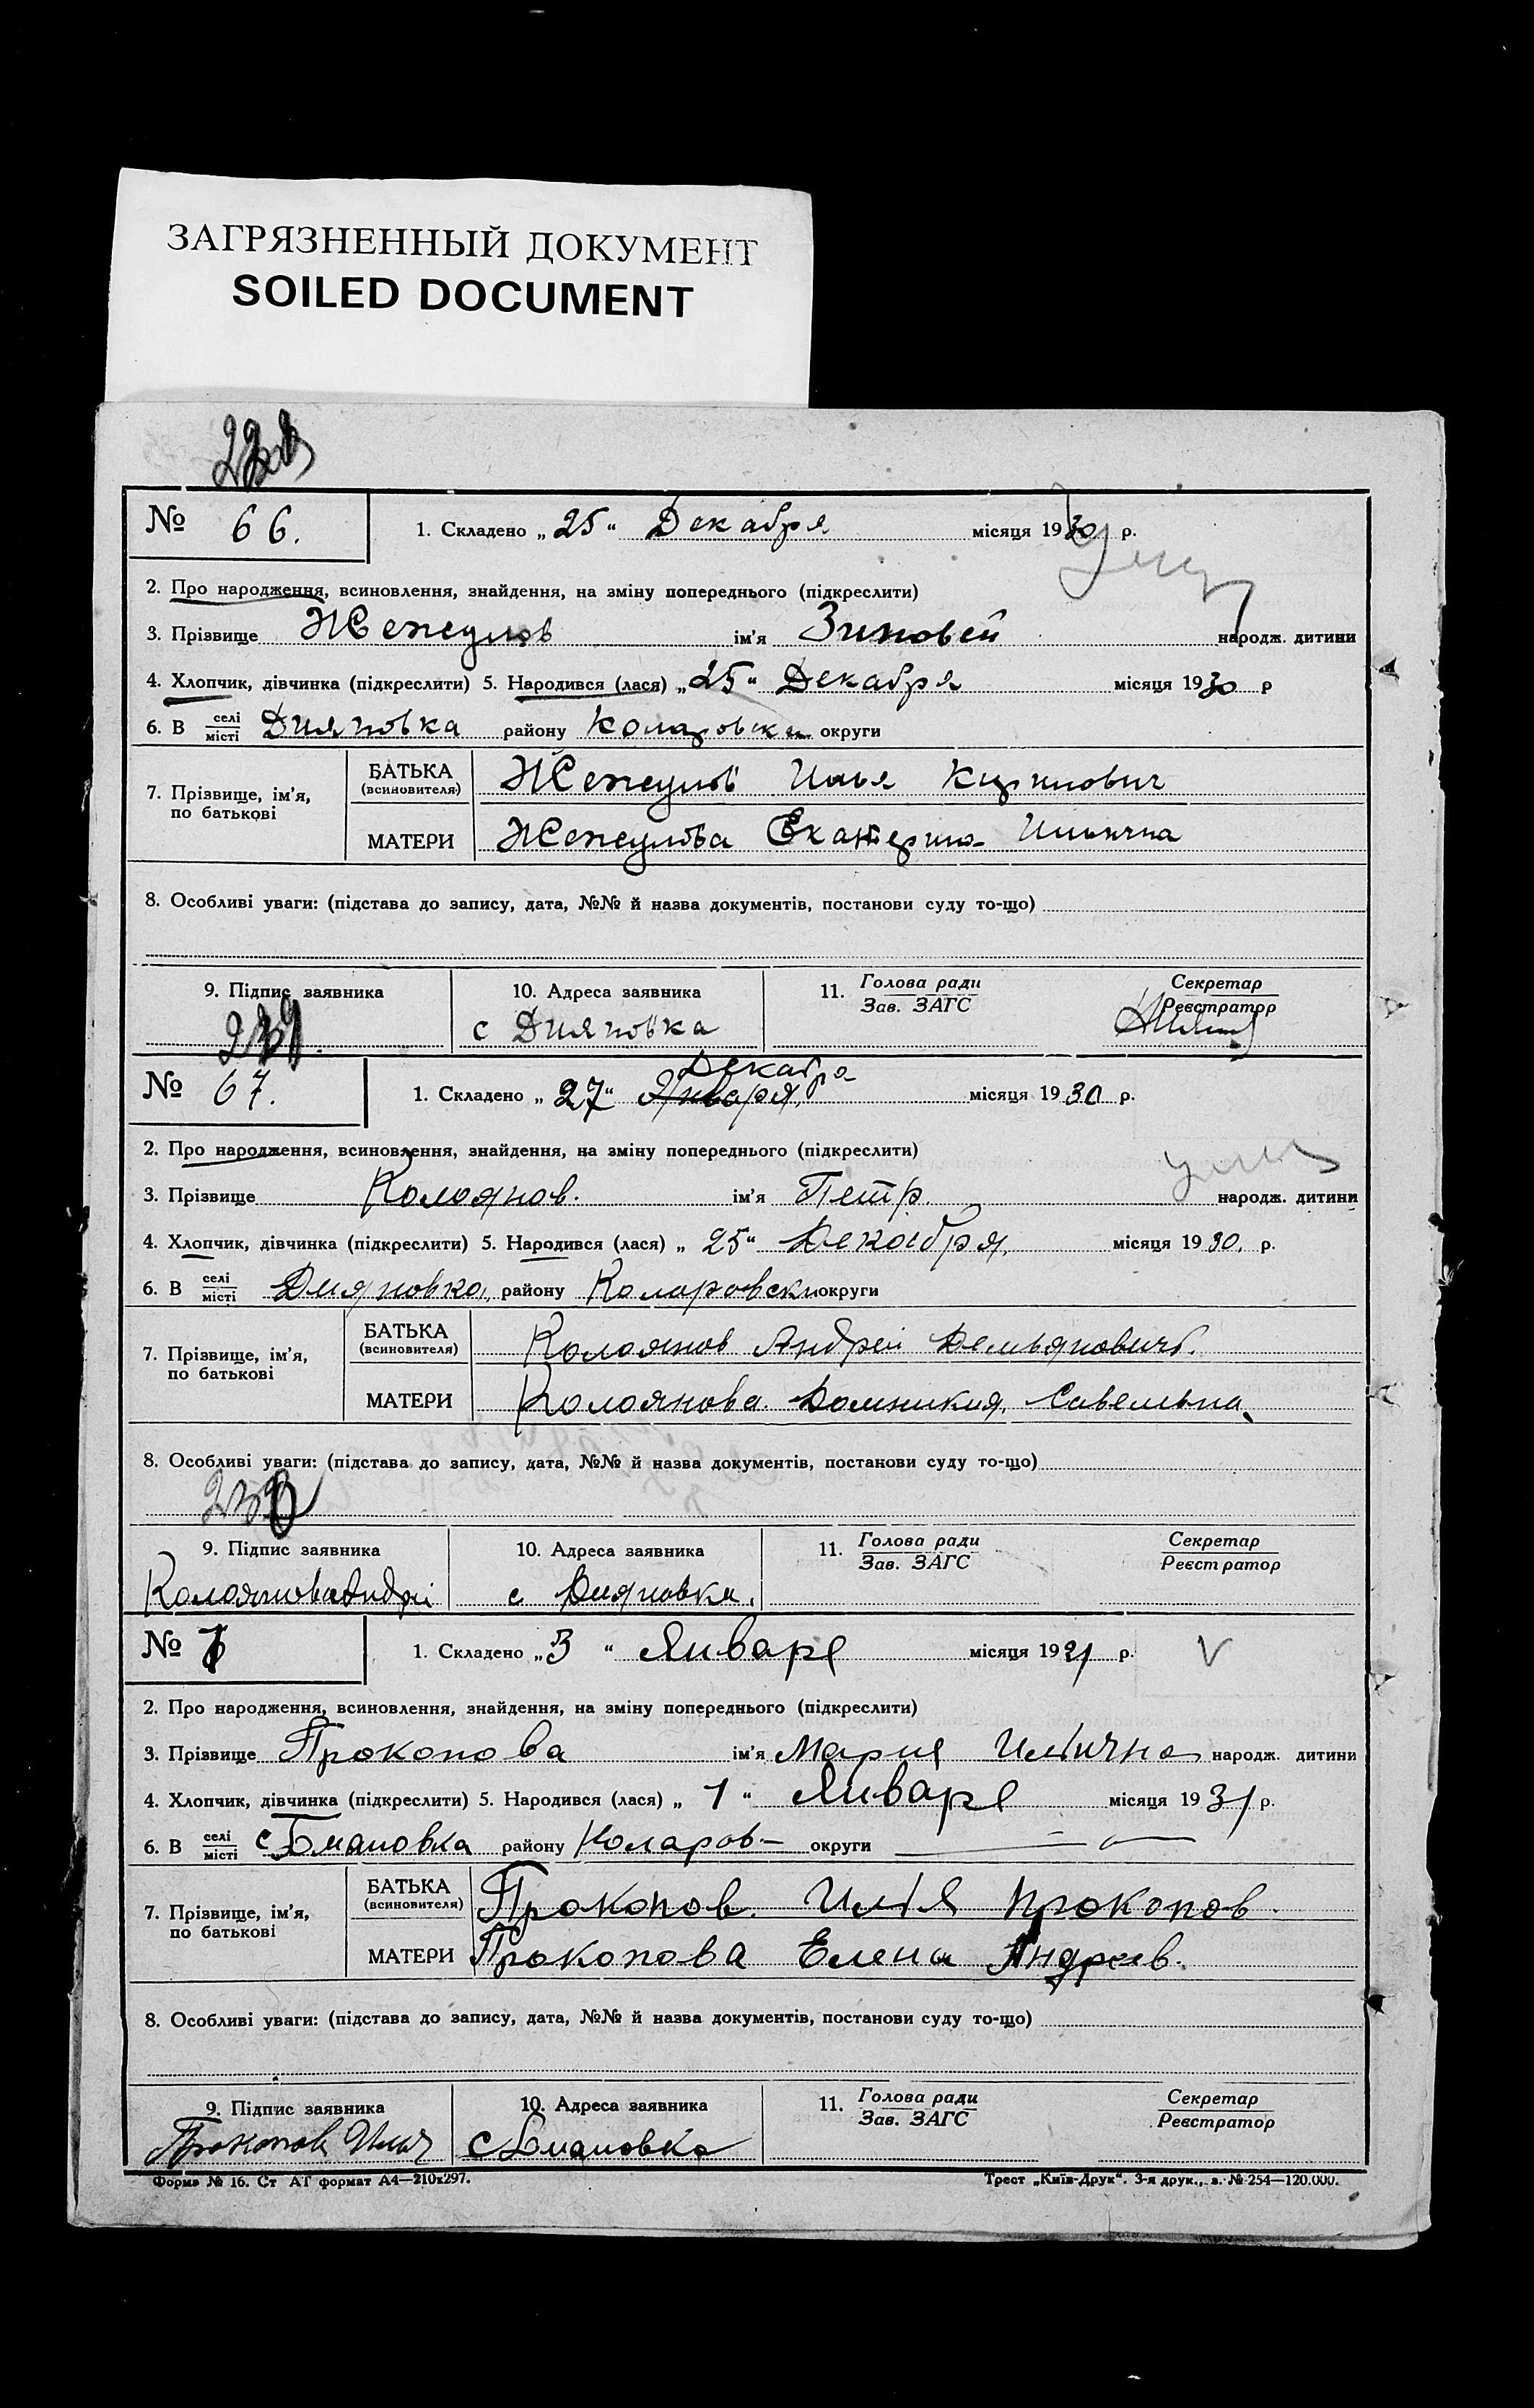 ЗАГРЯЗНЕННЫЙ ДОКУМЕНТ
SOILED DOCUMENT
№ 66. 1. Складено „25“ Декабря місяця 1930 р.
2. Про народження, всиновлення, знайдення, на зміну попереднього (підкреслити)
3. Прізвище Женжулов ім'я Зиновей народж. дитини
4. Хлопчик, дівчинка (підкреслити) 5. Народився (лася) „25“ Декабря місяця 1930 р
6. В селі/місті Дияновка району Коларовски округи
7. Прізвище, ім'я, по батькові
БАТЬКА (всиновителя) Женжулов Илья Кирилович
МАТЕРИ Женжулова Екатерина Ильична
8. Особливі уваги: (підстава до запису, дата, №№ й назва документів, постанови суду то-що)
9. Підпис заявника 10. Адреса заявника 11. Голова ради/Зав. ЗАГС Секретар/Реєстратор
239 с Дияновка
№ 67. 1. Складено „27“ Января, Декабра місяця 1930 р.
2. Про народження, всиновлення, знайдення, на зміну попереднього (підкреслити)
3. Прізвище Колоянов. ім'я Петр. народж. дитини
4. Хлопчик, дівчинка (підкреслити) 5. Народився (лася) „25“ Декабря, місяця 1930. р.
6. В селі/місті Дияновка, району Коларовски округи
7. Прізвище, ім'я, по батькові
БАТЬКА (всиновителя) Колоянов Андрей Демьяновичь.
МАТЕРИ Колоянова Домникия, Савельна
8. Особливі уваги: (підстава до запису, дата, №№ й назва документів, постанови суду то-що)
9. Підпис заявника 10. Адреса заявника 11. Голова ради/Зав. ЗАГС Секретар/Реєстратор
с Дияновка.
№ 1. Складено „3“ Январе місяця 1931 р.
2. Про народження, всиновлення, знайдення, на зміну попереднього (підкреслити)
3. Прізвище Прокопова ім'я Мария Илична народж. дитини
4. Хлопчик, дівчинка (підкреслити) 5. Народився (лася) „1“ Январе місяця 1931 р.
6. В селі/місті району Коларов- округи
7. Прізвище, ім'я, по батькові
БАТЬКА (всиновителя) Прокопов. Илия Прокопов.
МАТЕРИ Прокопова Елена Андреев.
8. Особливі уваги: (підстава до запису, дата, №№ й назва документів, постанови суду то-що)
9. Підпис заявника 10. Адреса заявника 11. Голова ради/Зав. ЗАГС Секретар/Реєстратор
Прокопов Илия
Форма № 16. Ст АТ формат А4—210х297. Трест „Київ-Друк“. 3-я друк., з. № 254—120.000.